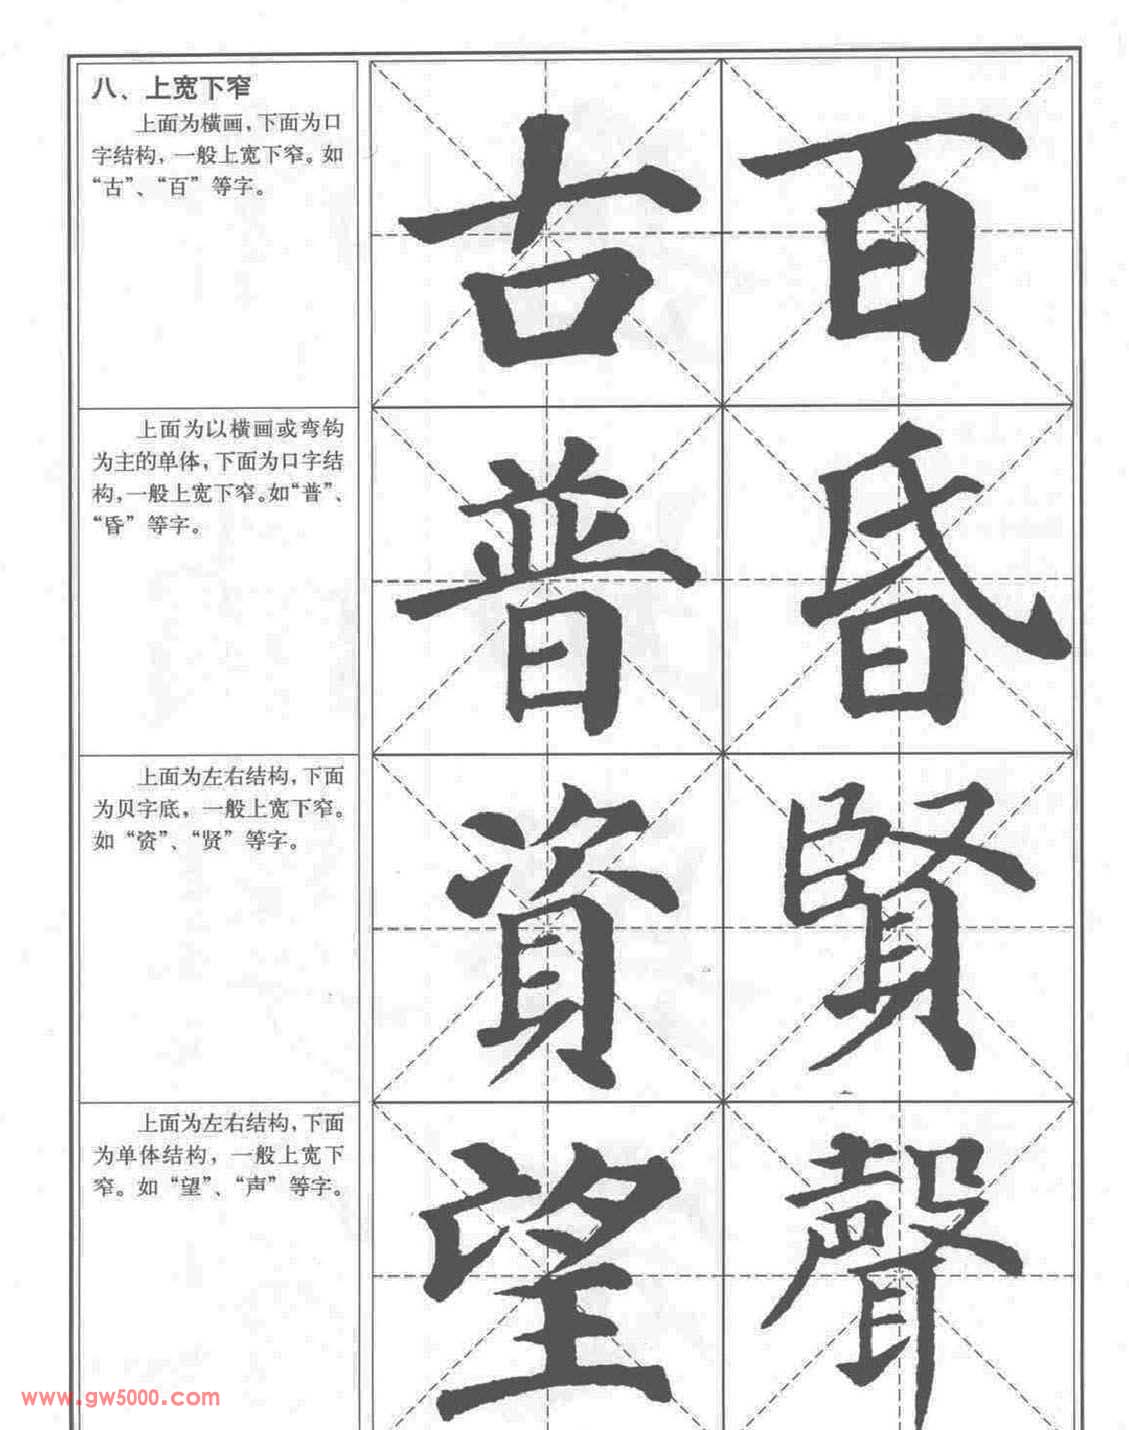 八、上宽下窄
上面为横画，下面为口
字结构，一般上宽下窄。如
“古”、“百”等字。
古 百
上面为以横画或弯钩
为主的单体，下面为口字结
构，一般上宽下窄。如“普”、
“昏”等字。
普 昏
上面为左右结构，下面
为贝字底，一般上宽下窄。
如“资”、“贤”等字。
資 賢
上面为左右结构，下面
为单体结构，一般上宽下
窄。如“望”、“声”等字。
望 聲
www.gw5000.com